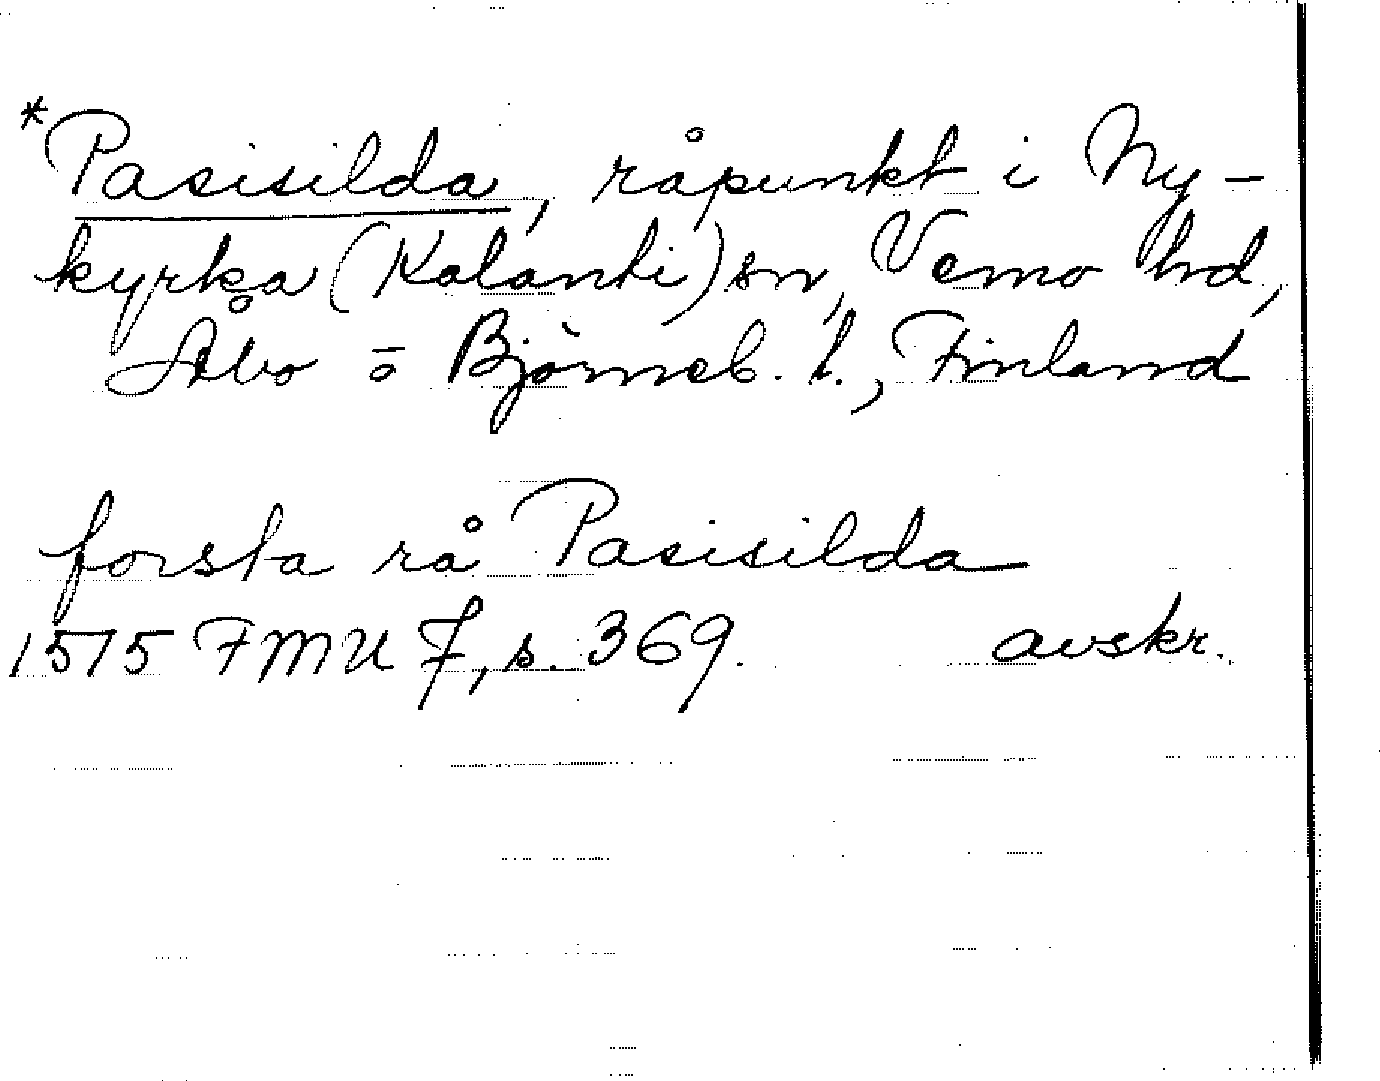 *Pasisilda, råpunkt i Ny-
kyrka (Kalanti) sn, Vemo hd,
Åbo o Björneb. l., Finland
forsta rå Pasisilda
1515 FMU 7, s. 369. avskr.